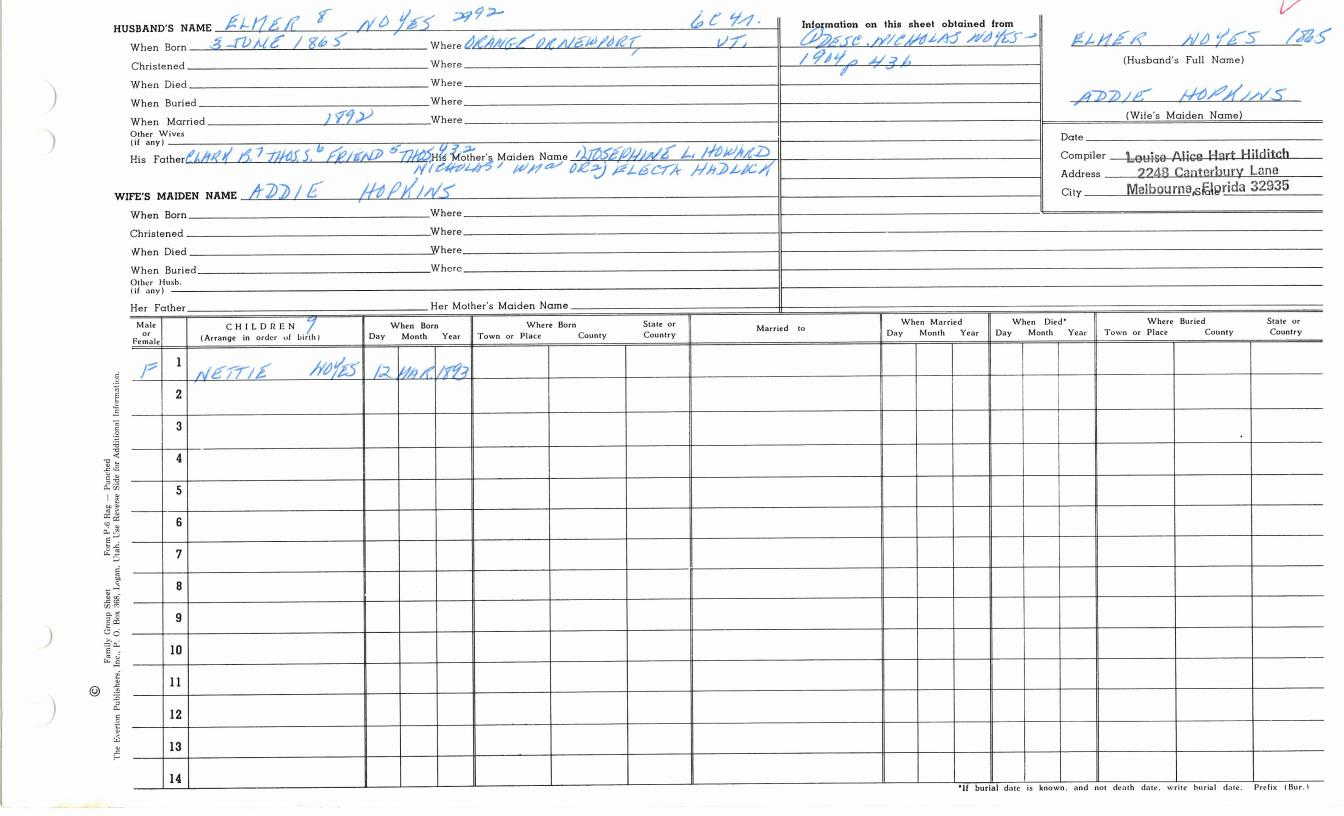 HUSBAND'S NAME ELMER 8 NOYES 2992
When Born 3 JUNE 1865 Where ORANGE OR NEWPORT, VT.
Christened Where
When Died Where
When Buried Where
When Married 1892 Where
Other Wives
(if any)
His Father CLARK B.7 THOS S.6 FRIEND 5 THOS 4 3 2 His Mother's Maiden Name 1) JOSEPHINE L. HOWARD
NICHOLAS' OR 2) ELECTA HADLOCK
WIFE'S MAIDEN NAME ADDIE HOPKINS
When Born Where
Christened Where
When Died Where
When Buried Where
Other Husb.
(if any)
Her Father Her Mother's Maiden Name
Information on this sheet obtained from
DESC. NICHOLAS NOYES -
1904 p 436
ELMER NOYES 1865
(Husband's Full Name)
ADDIE HOPKINS
(Wife's Maiden Name)
Date
Compiler Louise Alice Hart Hilditch
Address 2248 Canterbury Lane
City Melbourne, Florida 32935 State
Male or Female
CHILDREN 9
(Arrange in order of birth)
When Born
Day Month Year
Where Born
Town or Place County State or Country
Married to
When Married
Day Month Year
When Died*
Day Month Year
Where Buried
Town or Place County State or Country
F 1 NETTIE NOYES 12 MAR 1893
2
3
4
5
6
7
8
9
10
11
12
13
14
*If burial date is known, and not death date, write burial date. Prefix (Bur.)
Family Group Sheet Form P-6 Rag — Punched
© The Everton Publishers, Inc., P. O. Box 368, Logan, Utah. Use Reverse Side for Additional Information.